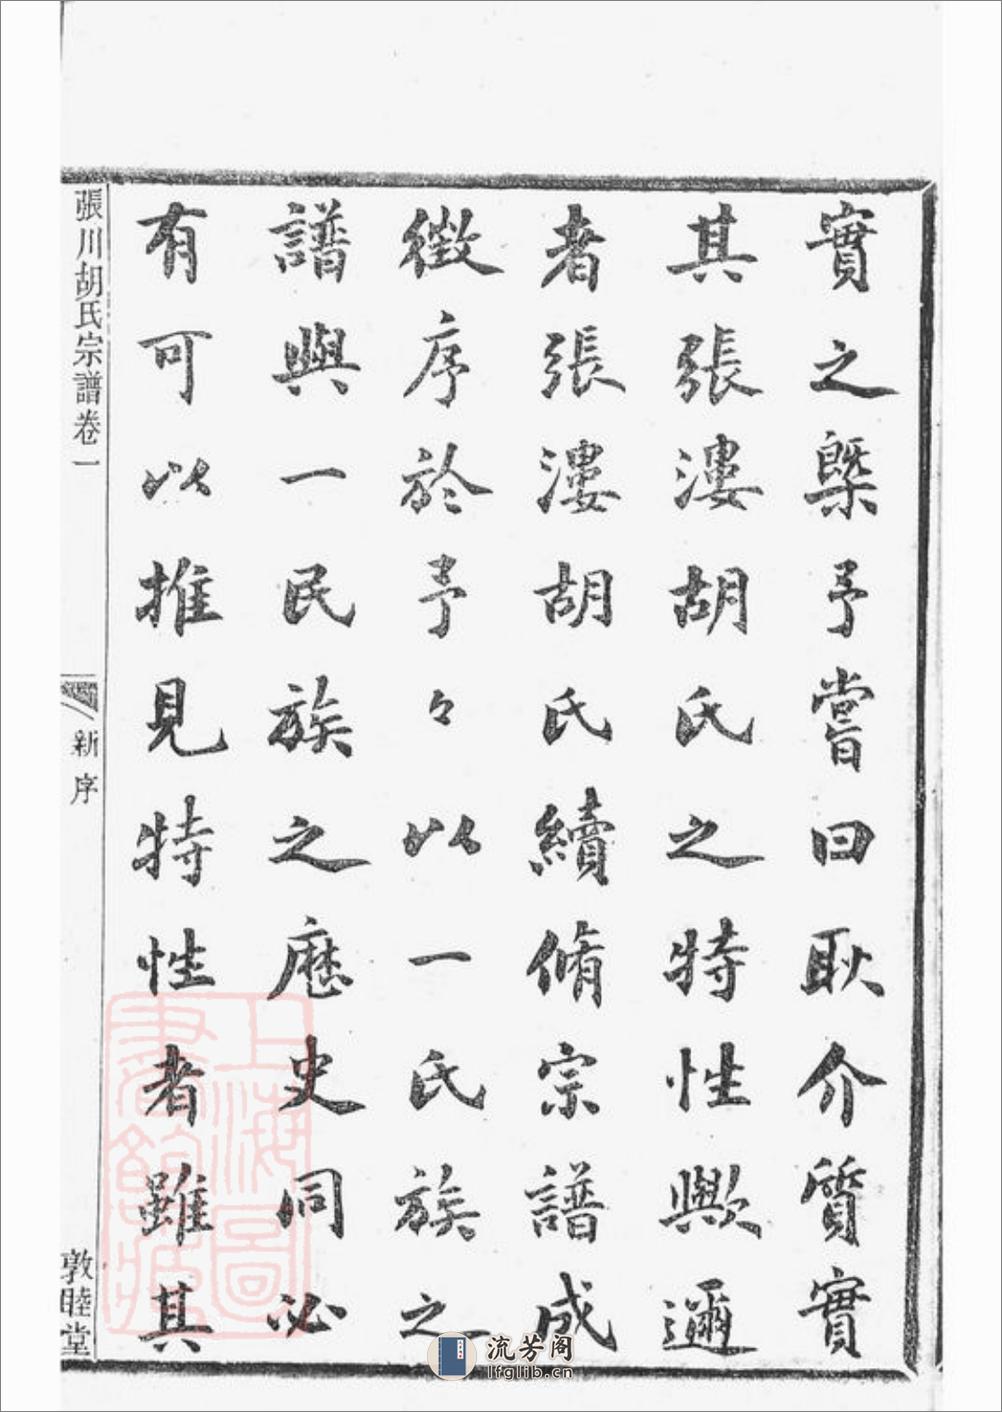 實之槩予嘗曰耿介質實
其張漊胡氏之特性歟邇
者張漊胡氏續脩宗譜成
徵序於予々以一氏族之
譜與一民族之歷史同必
有可以推見特性者雖其
張川胡氏宗譜卷一
新序
敦睦堂
上海圖
書館藏
流芳阁
lfglib.cn